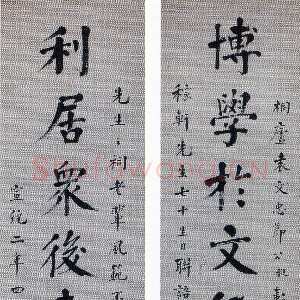 桐廬袁文忠節公
博學於文
稼軒先生七十生日聯語
先生
利居衆後
宣統二年四